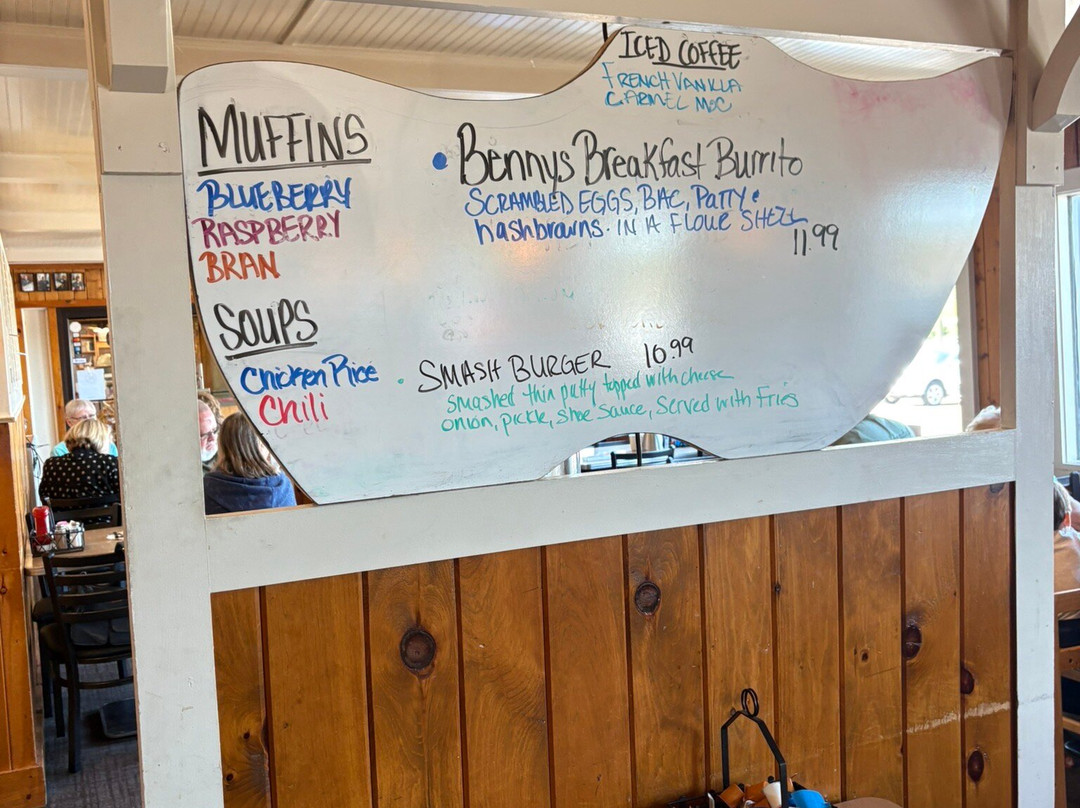 ICED COFFEE
FRENCH VANILLA
CARMEL MOC
MUFFINS
BLUEBERRY
RASPBERRY
BRAN
SOUPS
Chicken Rice
Chili
• Bennys Breakfast Burrito
SCRAMBLED EGGS, BAC, PATTY •
hashbrowns. IN A FLOUR SHELL
11.99
• SMASH BURGER 10.99
smashed thin patty topped with cheese
onion, pickle, shoe sauce, served with fries